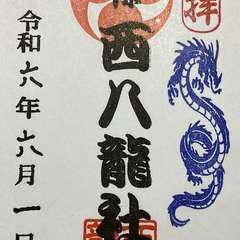 拝
西八龍社
令和六年六月一日